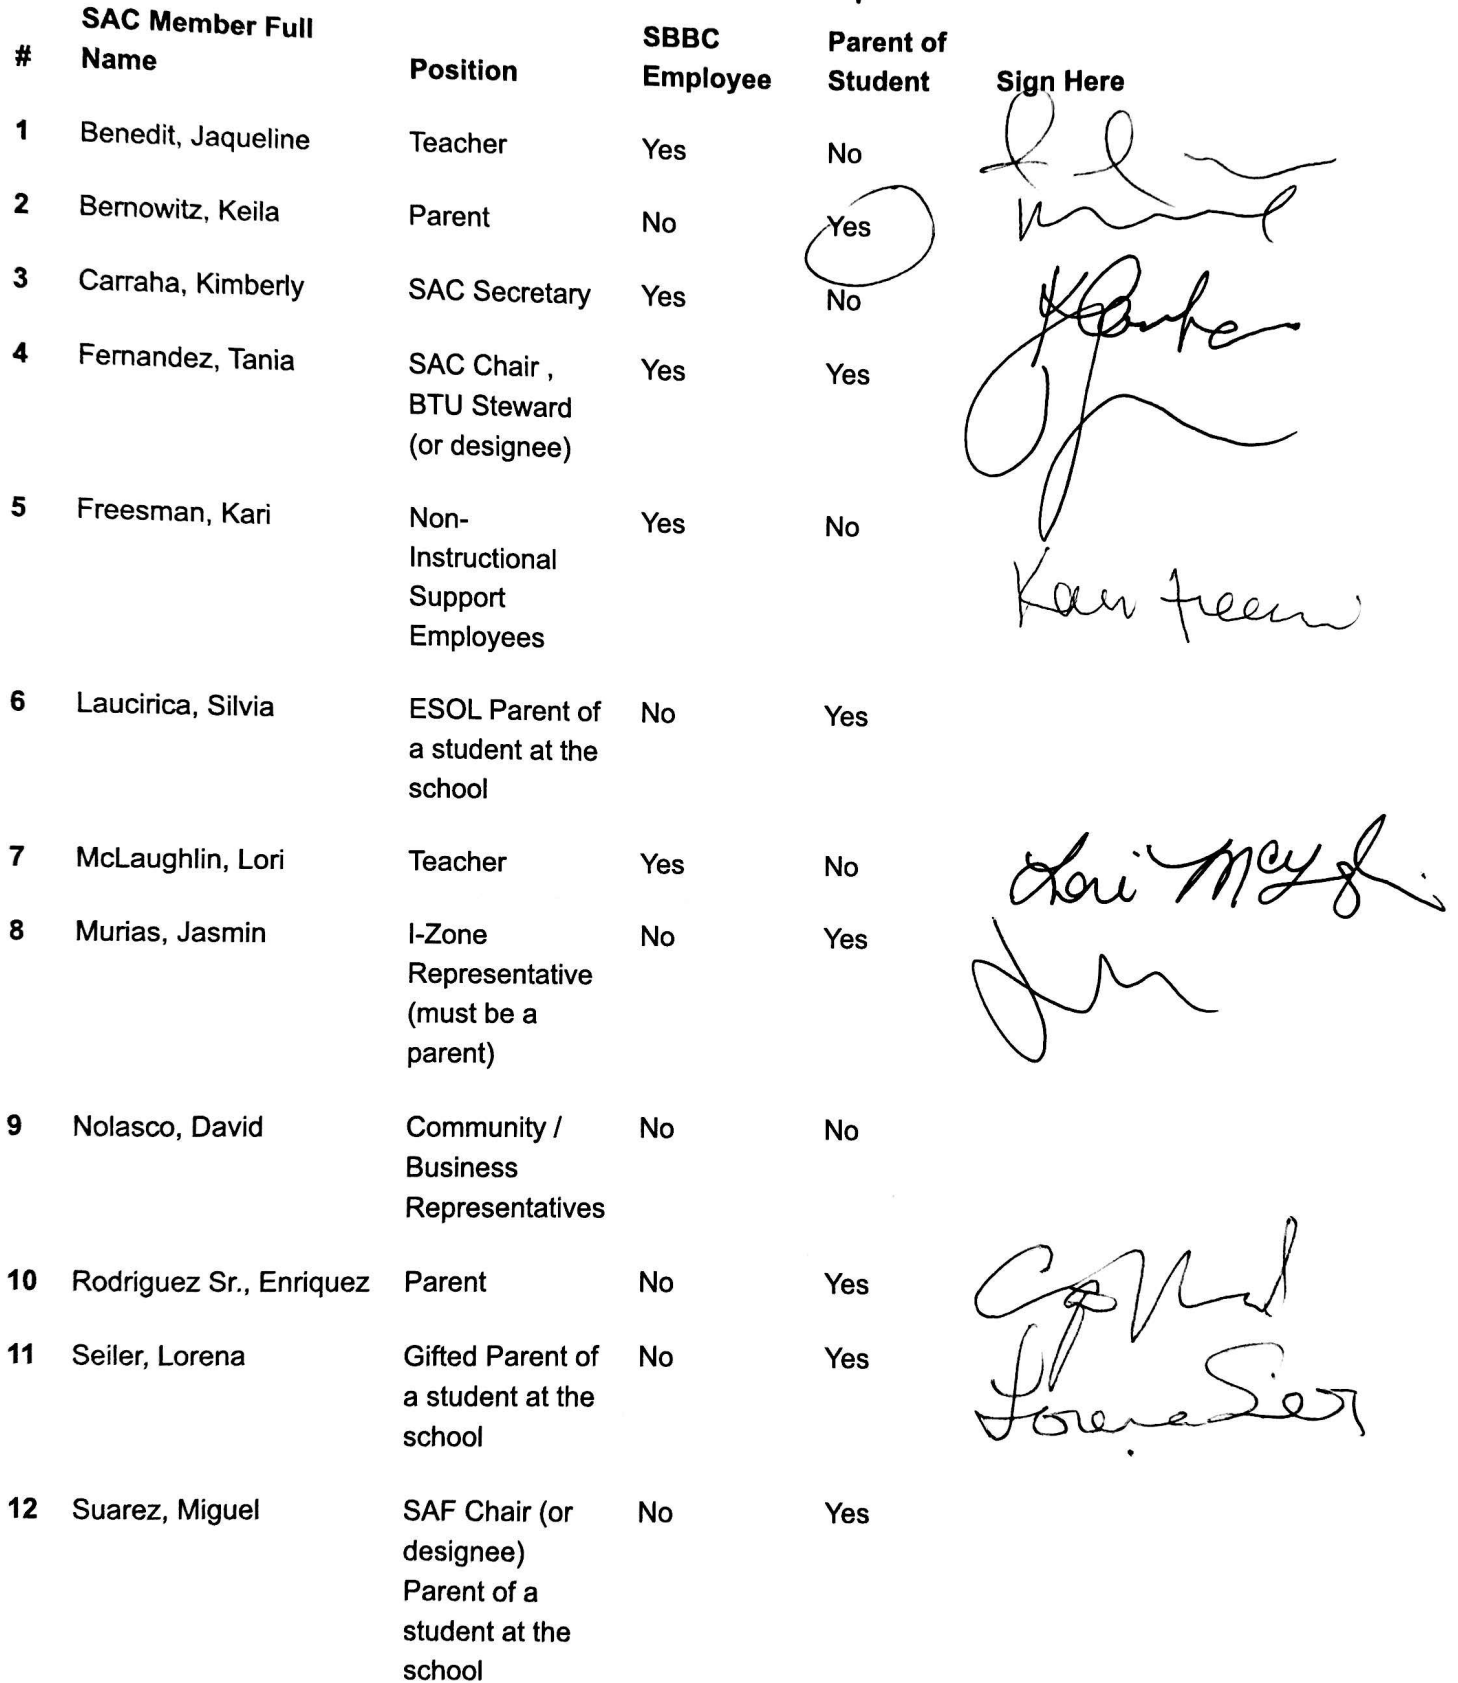 # SAC Member Full Name Position SBBC Employee Parent of Student Sign Here
1 Benedit, Jaqueline Teacher Yes No
2 Bernowitz, Keila Parent No Yes
3 Carraha, Kimberly SAC Secretary Yes No
4 Fernandez, Tania SAC Chair , Yes Yes
BTU Steward
(or designee)
5 Freesman, Kari Non- Yes No
Instructional
Support
Employees
6 Laucirica, Silvia ESOL Parent of No Yes
a student at the
school
7 McLaughlin, Lori Teacher Yes No Lori
8 Murias, Jasmin I-Zone No Yes
Representative
(must be a
parent)
9 Nolasco, David Community / No No
Business
Representatives
10 Rodriguez Sr., Enriquez Parent No Yes
11 Seiler, Lorena Gifted Parent of No Yes Lorena
a student at the
school
12 Suarez, Miguel SAF Chair (or No Yes
designee)
Parent of a
student at the
school